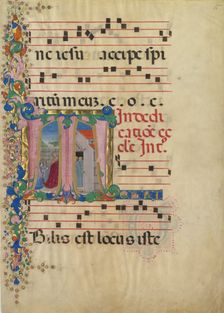 ne iesu accipe spi
ritum meuz. e. o. e.
In dedi
catiõe ec
cl'e Int.
Bilis est locus iste